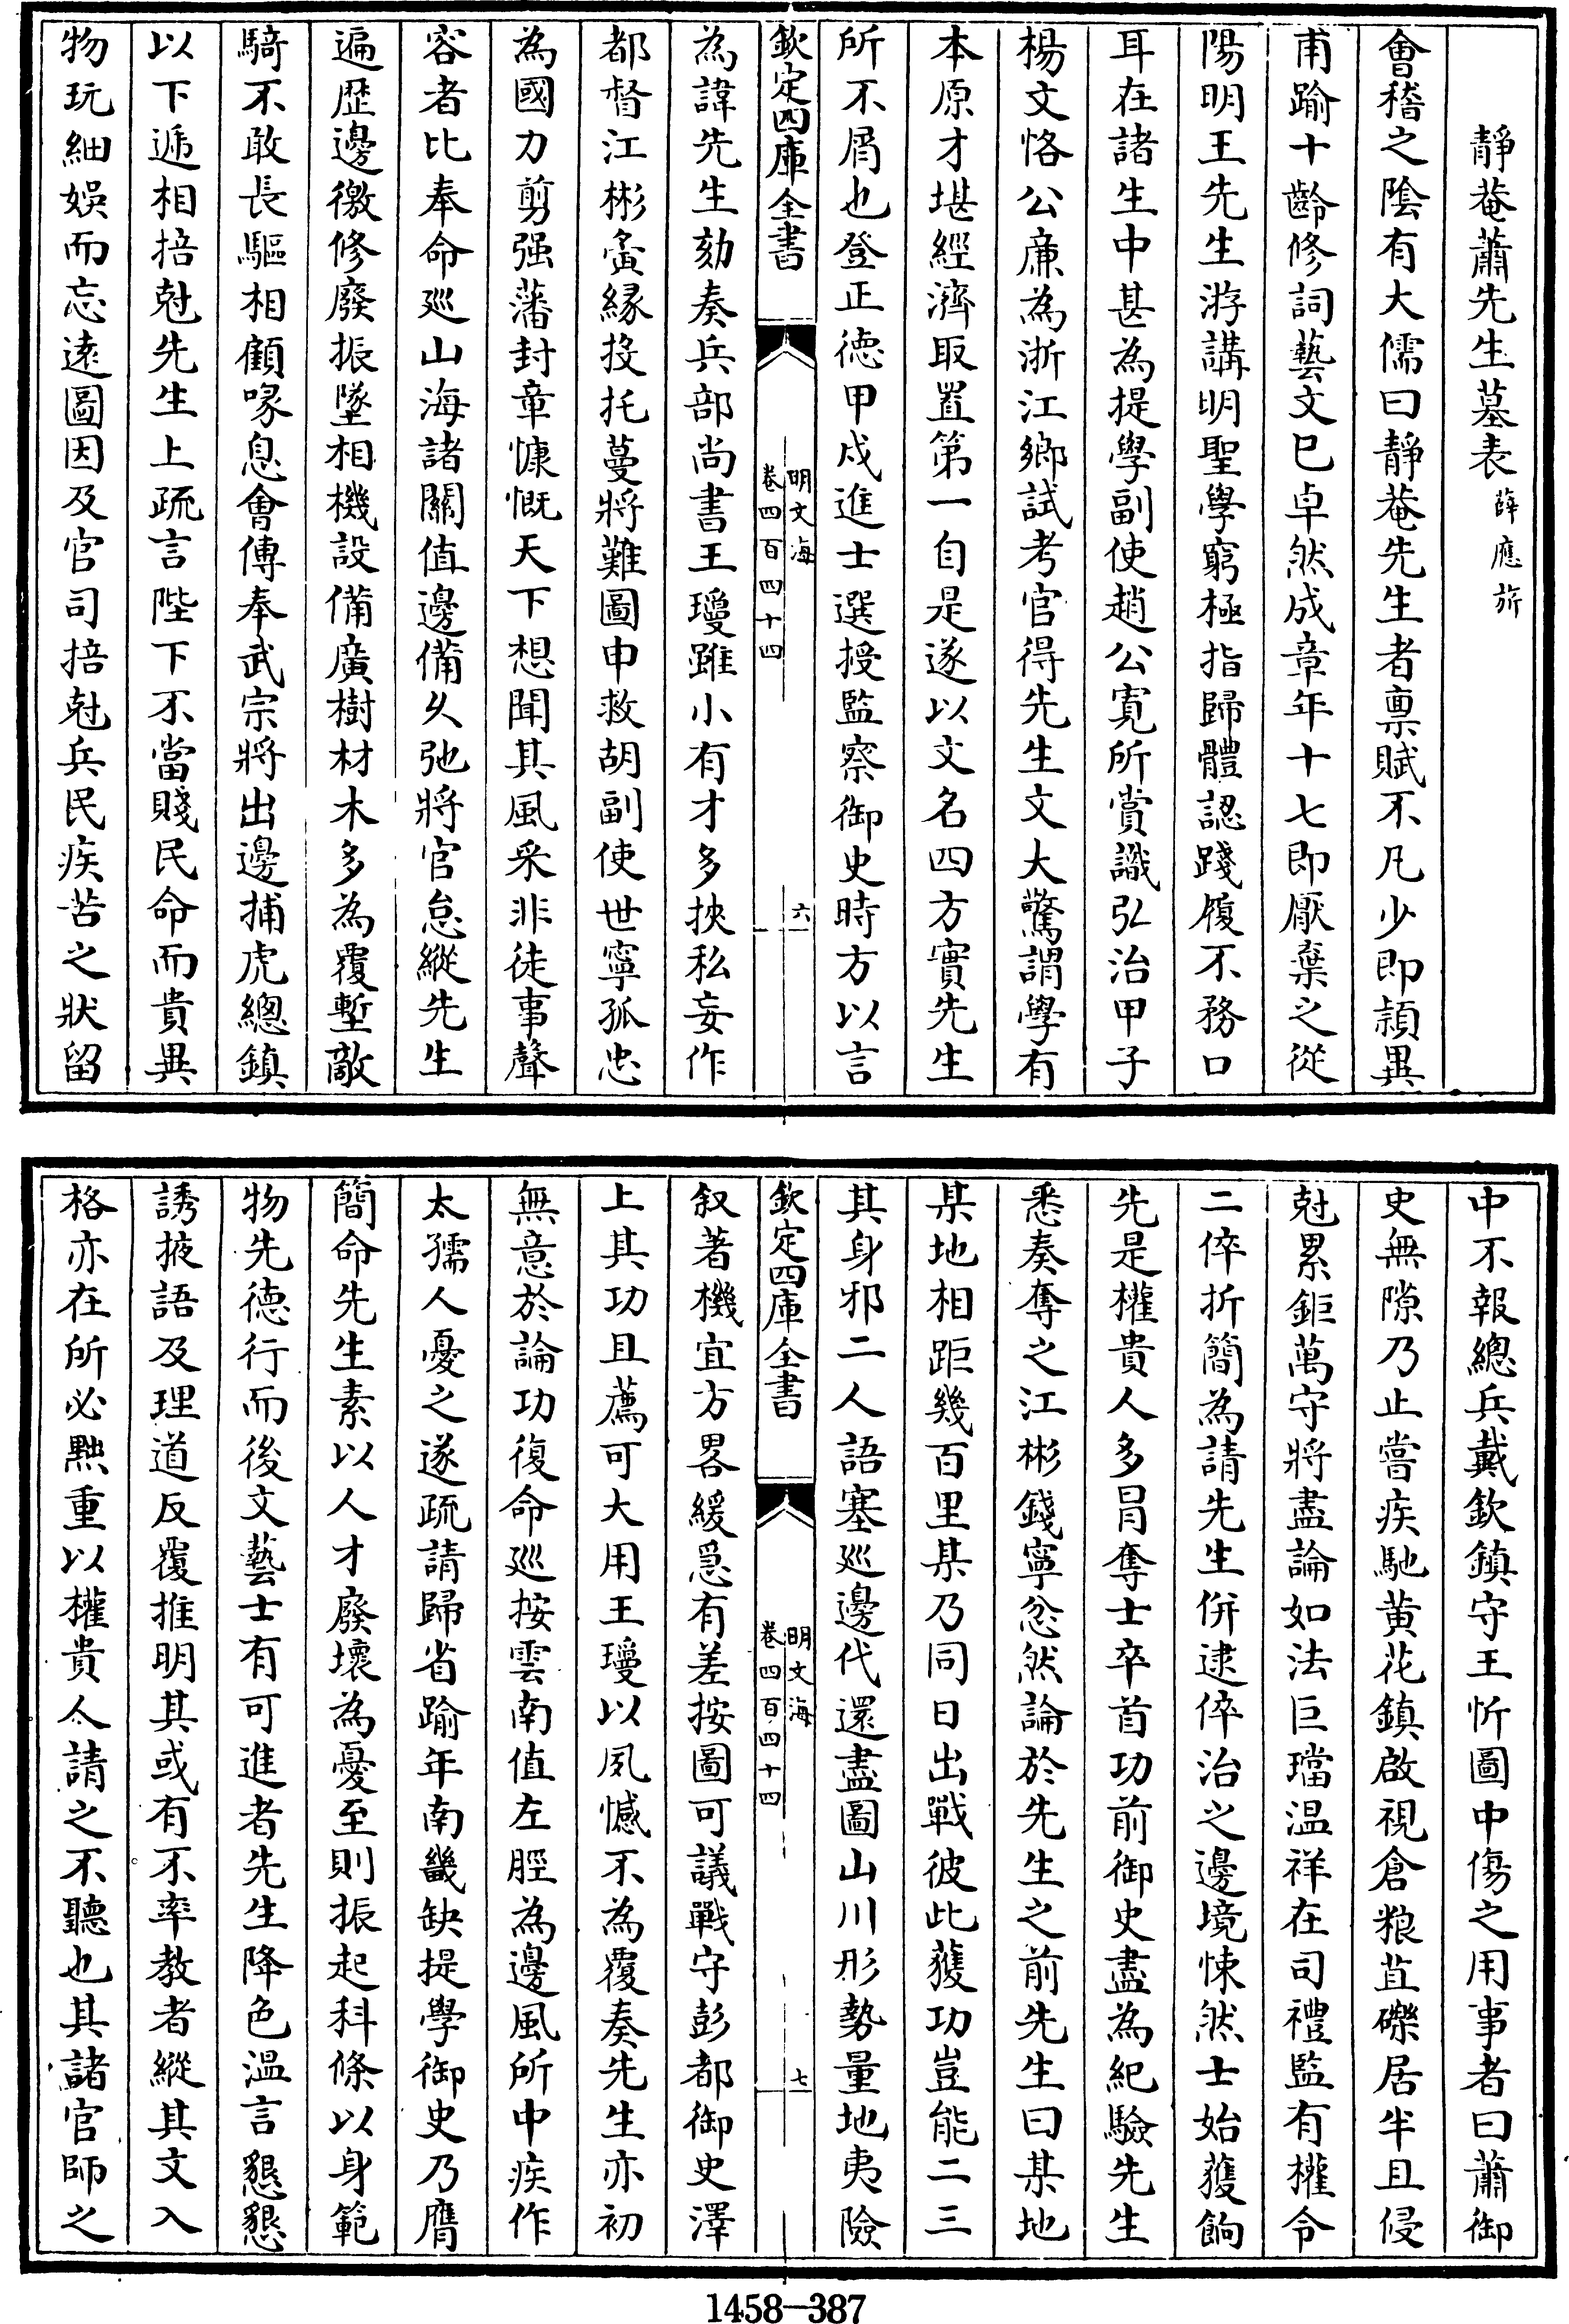 靜菴蕭先生墓表薛應旂
會稽之陰有大儒曰靜菴先生者禀賦不凡少即頴異
甫踰十齡修詞藝文已卓然成章年十七即厭棄之從
陽明王先生游講明聖學窮極指歸體認踐履不務口
耳在諸生中甚為提學副使趙公寛所賞識弘治甲子
楊文恪公廉為浙江鄉試考官得先生文大驚謂學有
本原才堪經濟取置第一自是遂以文名四方實先生
所不屑也登正德甲戍進士選授監察御史時方以言
欽定四庫全書
明文海
卷四百四十四
六
為諱先生劾奏兵部尚書王瓊雖小有才多挾私妄作
都督江彬夤緣投托蔓將難圖申救胡副使世寧孤忠
為國力剪强藩封章慷慨天下想聞其風采非徒事聲
容者比奉命巡山海諸關值邊備乆弛將官怠縱先生
遍歴邊徼修廢振墜相機設備廣樹材木多為覆塹敵
騎不敢長驅相顧喙息會傳奉武宗將出邊捕虎總鎮
以下遞相掊尅先生上疏言陛下不當賤民命而貴異
物玩細娛而忘遠圖因及官司掊尅兵民疾苦之狀留
中不報總兵戴欽鎮守王忻圖中傷之用事者曰蕭御
史無隙乃止嘗疾馳黄花鎮啟視倉粮苴礫居半且侵
尅累鉅萬守將盡論如法巨璫温祥在司禮監有權令
二倅折簡為請先生併逮倅治之邊境悚然士始獲餉
先是權貴人多冒奪士卒首功前御史盡為紀驗先生
悉奏奪之江彬錢寧忿然論於先生之前先生曰某地
某地相距幾百里某乃同日出戰彼此獲功豈能二三
其身邪二人語塞巡邊代還盡圖山川形勢量地夷險
欽定四庫全書
明文海
卷四百四十四
七
叙著機宜方畧緩急有差按圖可議戰守彭都御史澤
上其功且薦可大用王瓊以夙憾不為覆奏先生亦初
無意於論功復命巡按雲南值左脛為邊風所中疾作
太孺人憂之遂疏請歸省踰年南畿缺提學御史乃膺
簡命先生素以人才廢壞為憂至則振起科條以身範
物先德行而後文藝士有可進者先生降色溫言懇懇
誘掖語及理道反覆推明其或有不率教者縱其文入
格亦在所必黜重以權貴人請之不聽也其諸官師之
1458-387